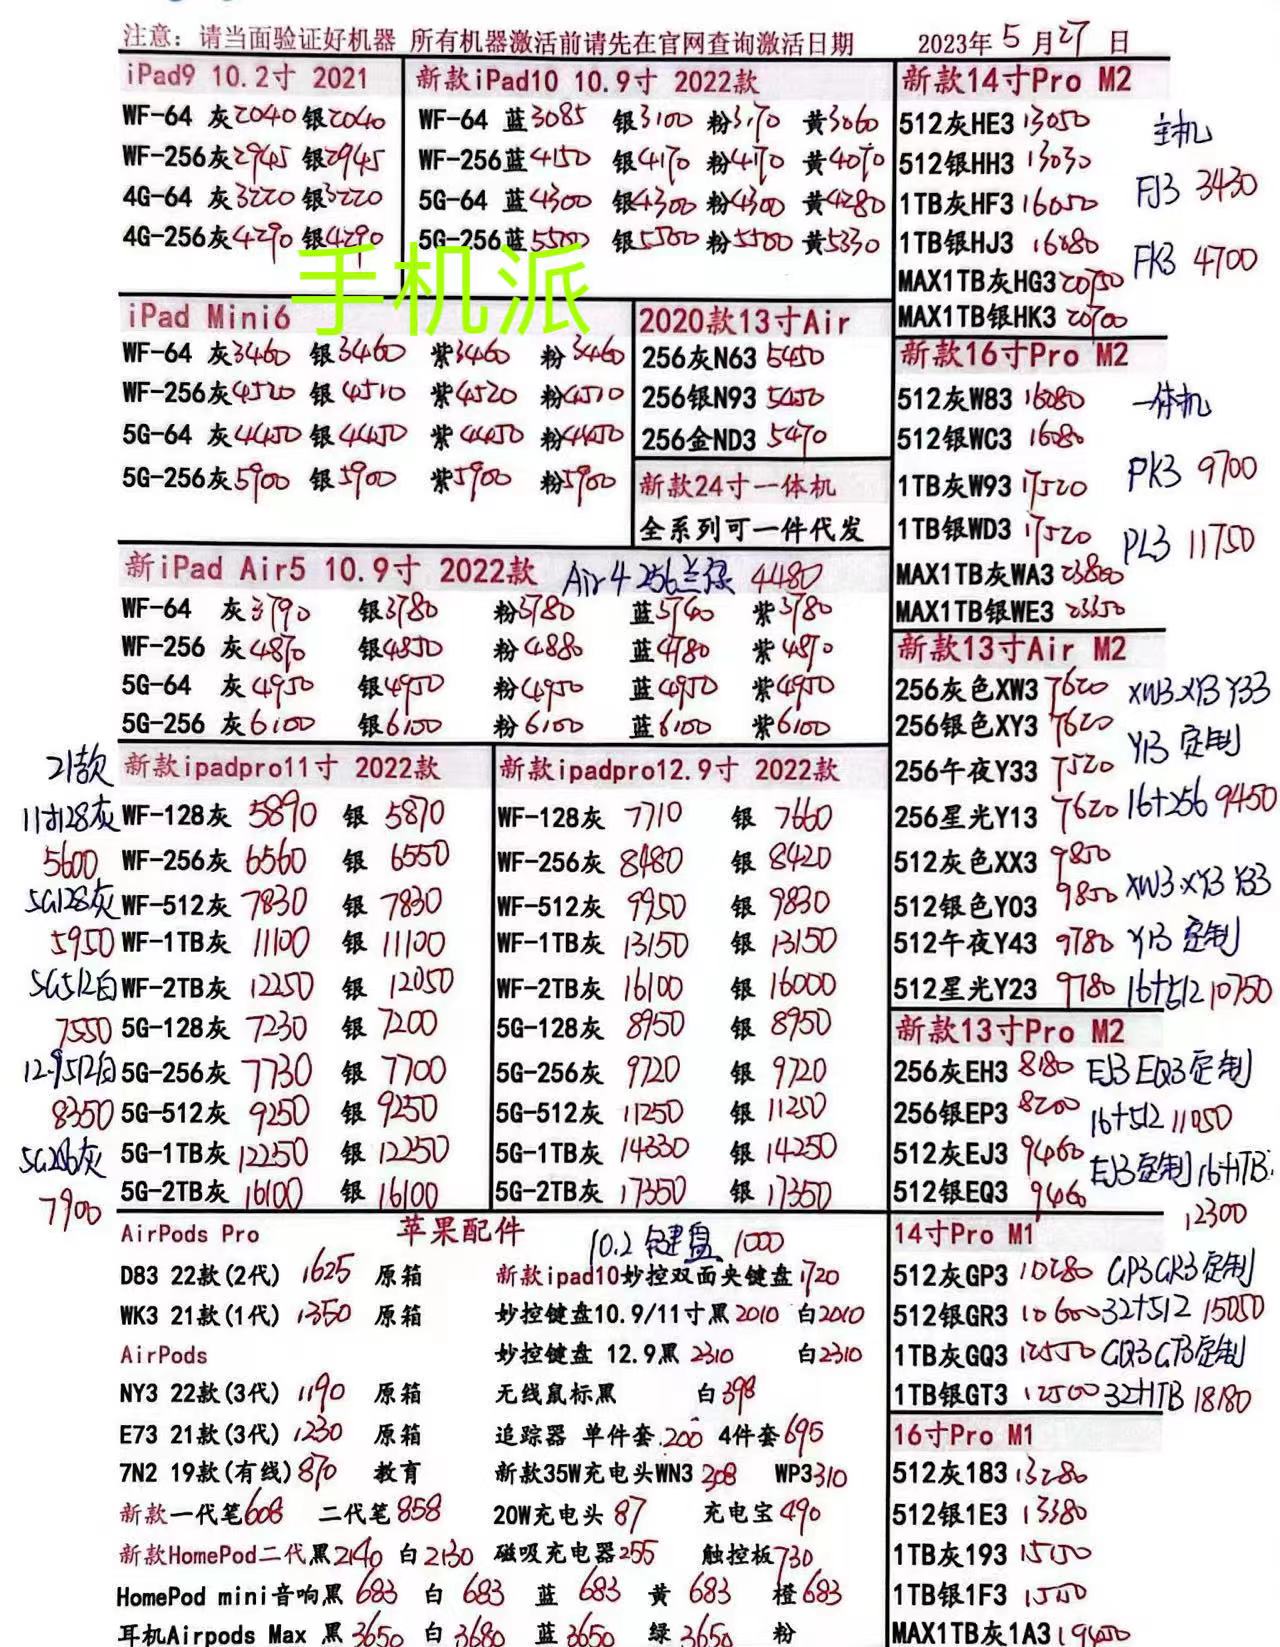 注意：请当面验证好机器 所有机器激活前请先在官网查询激活日期 2023年 5 月 27 日
iPad9 10.2寸 2021
WF-64 灰2040 银2040
WF-256灰2945 银2945
4G-64 灰3220 银3220
4G-256灰4290 银4290
新款iPad10 10.9寸 2022款
WF-64 蓝3085 银3100 粉3170 黄3060
WF-256蓝4150 银4170 粉4170 黄4070
5G-64 蓝4300 银4300 粉4300 黄4280
5G-256蓝5500 银5500 粉5500 黄5330
手机派
iPad Mini6
WF-64 灰3460 银3460 紫3460 粉3460
WF-256灰4520 银4510 紫4520 粉4510
5G-64 灰4450 银4450 紫4450 粉4450
5G-256灰5900 银5900 紫5900 粉5900
2020款13寸Air
256灰N63 5450
256银N93 5450
256金ND3 5470
新款24寸一体机
全系列可一件代发
新iPad Air5 10.9寸 2022款 Air4 256兰绿 4480
WF-64 灰3790 银3780 粉3780 蓝3740 紫3780
WF-256 灰4870 银4850 粉4880 蓝4780 紫4870
5G-64 灰4950 银4950 粉4950 蓝4950 紫4950
5G-256 灰6100 银6100 粉6100 蓝6100 紫6100
21款
11寸128灰
5600
5G128灰
5950
5G512白
7550
12.9512白
8350
5G256灰
7900
新款ipadpro11寸 2022款
WF-128灰 5890 银 5870
WF-256灰 6560 银 6550
WF-512灰 7830 银 7830
WF-1TB灰 11100 银 11100
WF-2TB灰 12250 银 12050
5G-128灰 7230 银 7200
5G-256灰 7730 银 7700
5G-512灰 9250 银 9250
5G-1TB灰 12250 银 12250
5G-2TB灰 16100 银 16100
新款ipadpro12.9寸 2022款
WF-128灰 7710 银 7660
WF-256灰 8480 银 8420
WF-512灰 9950 银 9830
WF-1TB灰 13150 银 13150
WF-2TB灰 16100 银 16000
5G-128灰 8950 银 8950
5G-256灰 9720 银 9720
5G-512灰 11250 银 11250
5G-1TB灰 14330 银 14250
5G-2TB灰 17350 银 17350
苹果配件
AirPods Pro
D83 22款(2代) 1625 原箱
WK3 21款(1代) 1350 原箱
AirPods
NY3 22款(3代) 1190 原箱
E73 21款(3代) 1230 原箱
7N2 19款(有线) 870 教育
新款一代笔608 二代笔858
新款HomePod二代黑2140 白2130
HomePod mini音响黑 683 白 683 蓝 683 黄 683 橙683
耳机Airpods Max 黑 3650 白 3680 蓝 3650 绿 3650 粉
10.2 键盘 1000
新款ipad10妙控双面夹键盘1720
妙控键盘10.9/11寸黑2010 白2010
妙控键盘 12.9黑 2310 白2310
无线鼠标黑 白398
追踪器 单件套 200 4件套695
新款35W充电头WN3 208 WP3310
20W充电头 87 充电宝490
磁吸充电器255 触控板730
新款14寸Pro M2
512灰HE3 13050
512银HH3 13030
1TB灰HF3 16050
1TB银HJ3 16080
MAX1TB灰HG3 20750
MAX1TB银HK3 20700
主机
FJ3 3430
FK3 4700
新款16寸Pro M2
512灰W83 16080
512银WC3 16080
1TB灰W93 17520
1TB银WD3 17520
MAX1TB灰WA3 23800
MAX1TB银WE3 23350
一体机
PK3 9700
PL3 11750
新款13寸Air M2
256灰色XW3 7620
256银色XY3 7620
256午夜Y33 7520
256星光Y13 7620
512灰色XX3 9850
512银色Y03 9850
512午夜Y43 9780
512星光Y23 9780
XW3.XY3 Y33
Y13 定制
16+256 9450
XW3.XY3 Y33
Y13 定制
16+512 10750
新款13寸Pro M2
256灰EH3 8180
256银EP3 8200
512灰EJ3 9460
512银EQ3 9460
EJ3 EQ3定制
16+512 11050
EJ3定制 16+1TB:
12300
14寸Pro M1
512灰GP3 10280 GP3GR3定制
512银GR3 10600 32+512 15050
1TB灰GQ3 12550 GQ3GT3定制
1TB银GT3 12500 32+1TB 18180
16寸Pro M1
512灰183 13280
512银1E3 13380
1TB灰193 15150
1TB银1F3
MAX1TB灰1A3